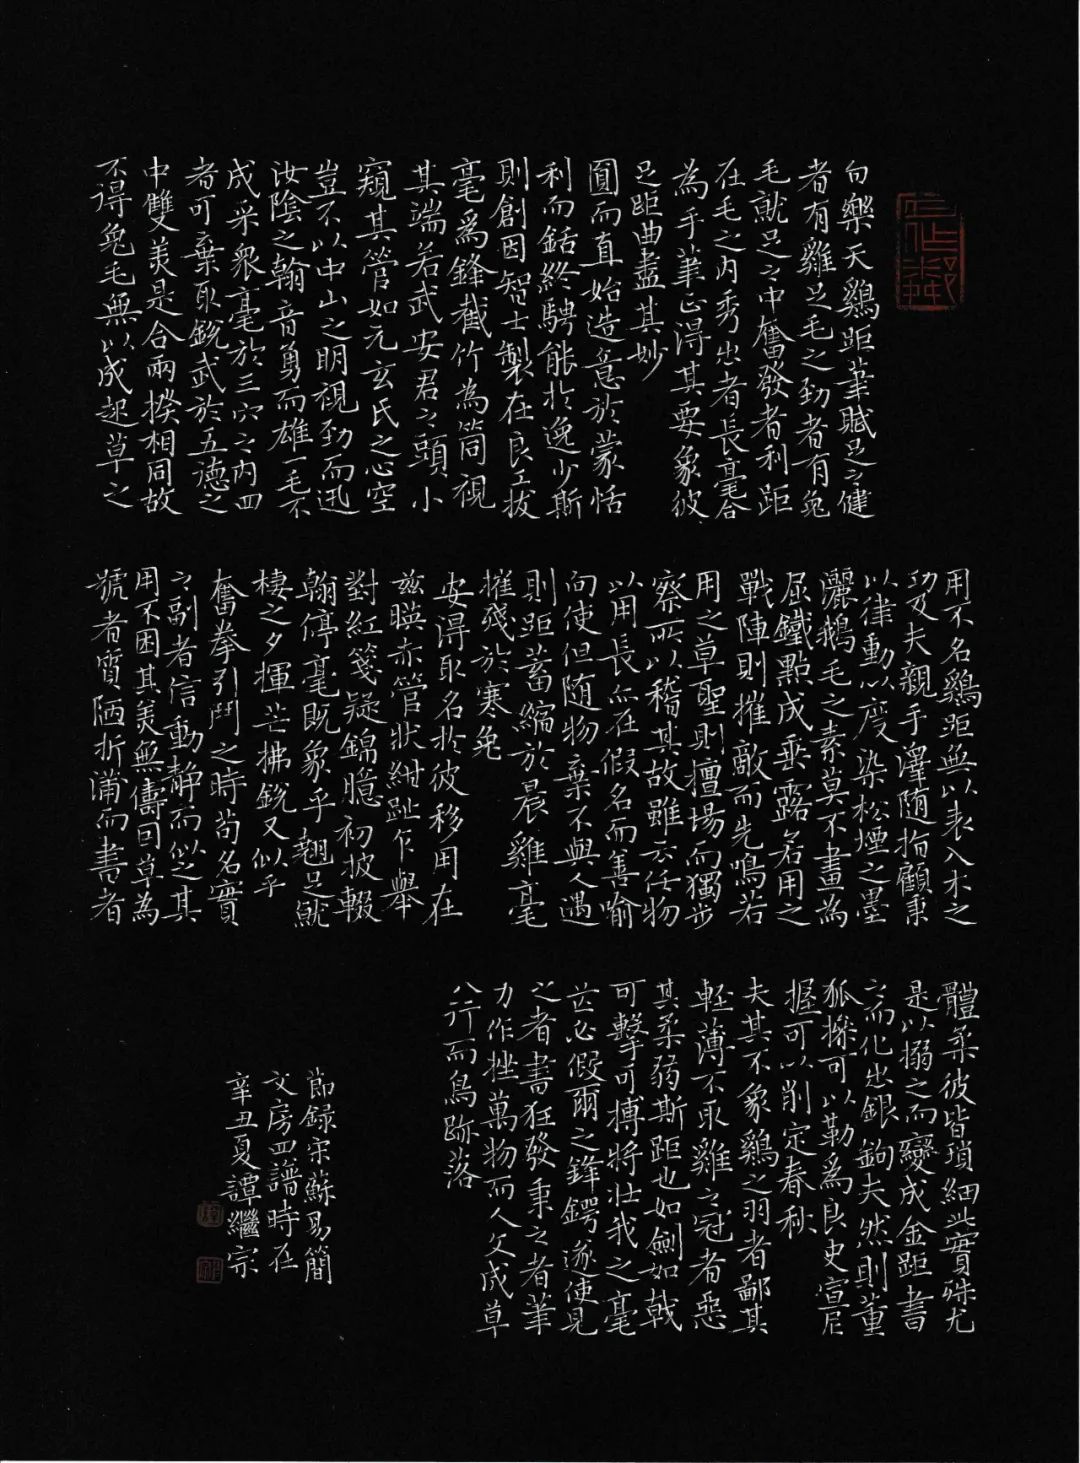 白樂天鷄距筆賦足之健
者有雞足毛之勁者有兔
毛就足之中奮發者利距
在毛之内秀出者長毫合
為手筆正得其要象彼
足距曲盡其妙
圓而直始造意於蒙恬
利而銛終騁能於逸少斯
則創因智士製在良工拔
毫爲鋒截竹為筒視
其端若武安君之頭小
窺其管如元玄氏之心空
豈不以中山之明視勁而迅
汝陰之翰音勇而雄一毛不
成采衆毫於三穴之内四
者可棄取銳武於五德之
中雙美是合兩揆相同故
不得兔毛無以成起草之
用不名鷄距無以表入木之
功及夫親手澤随指顧秉
以律動以度染松煙之墨
灑鵝毛之素莫不畫為
屈鐵點成垂露若用之
戰陣則摧敵而先鳴若
用之草聖則擅場而獨步
察所以稽其故雖云任物
以用長亦在假名而善喻
向使但随物棄不與人遇
則距蓄縮於晨雞毫
摧殘於寒兔
安得取名於彼移用在
兹瞑赤管狀紺趾乍舉
對紅箋疑錦臆初披輟
翰停毫既象乎翹足就
棲之夕揮芒拂銳又似乎
奮拳引鬥之時苟名實
之副者信動靜而似之其
用不困其美無儔因草為
號者質陋折蒲而書者
體柔彼皆瑣細此實殊尤
是以搦之而變成金距書
之而化出銀鉤夫然則董
狐操可以勒爲良史宣尼
握可以削定春秋
夫其不象鷄之羽者鄙其
軽薄不取雞之冠者惡
其柔弱斯距也如劍如戟
可擊可搏將壯我之毫
芒必假爾之鋒鍔遂使見
之者書狂發秉之者筆
力作挫萬物而人文成草
八行而鳥跡落
節録宋蘇易簡
文房四譜時在
辛丑夏譚繼宗